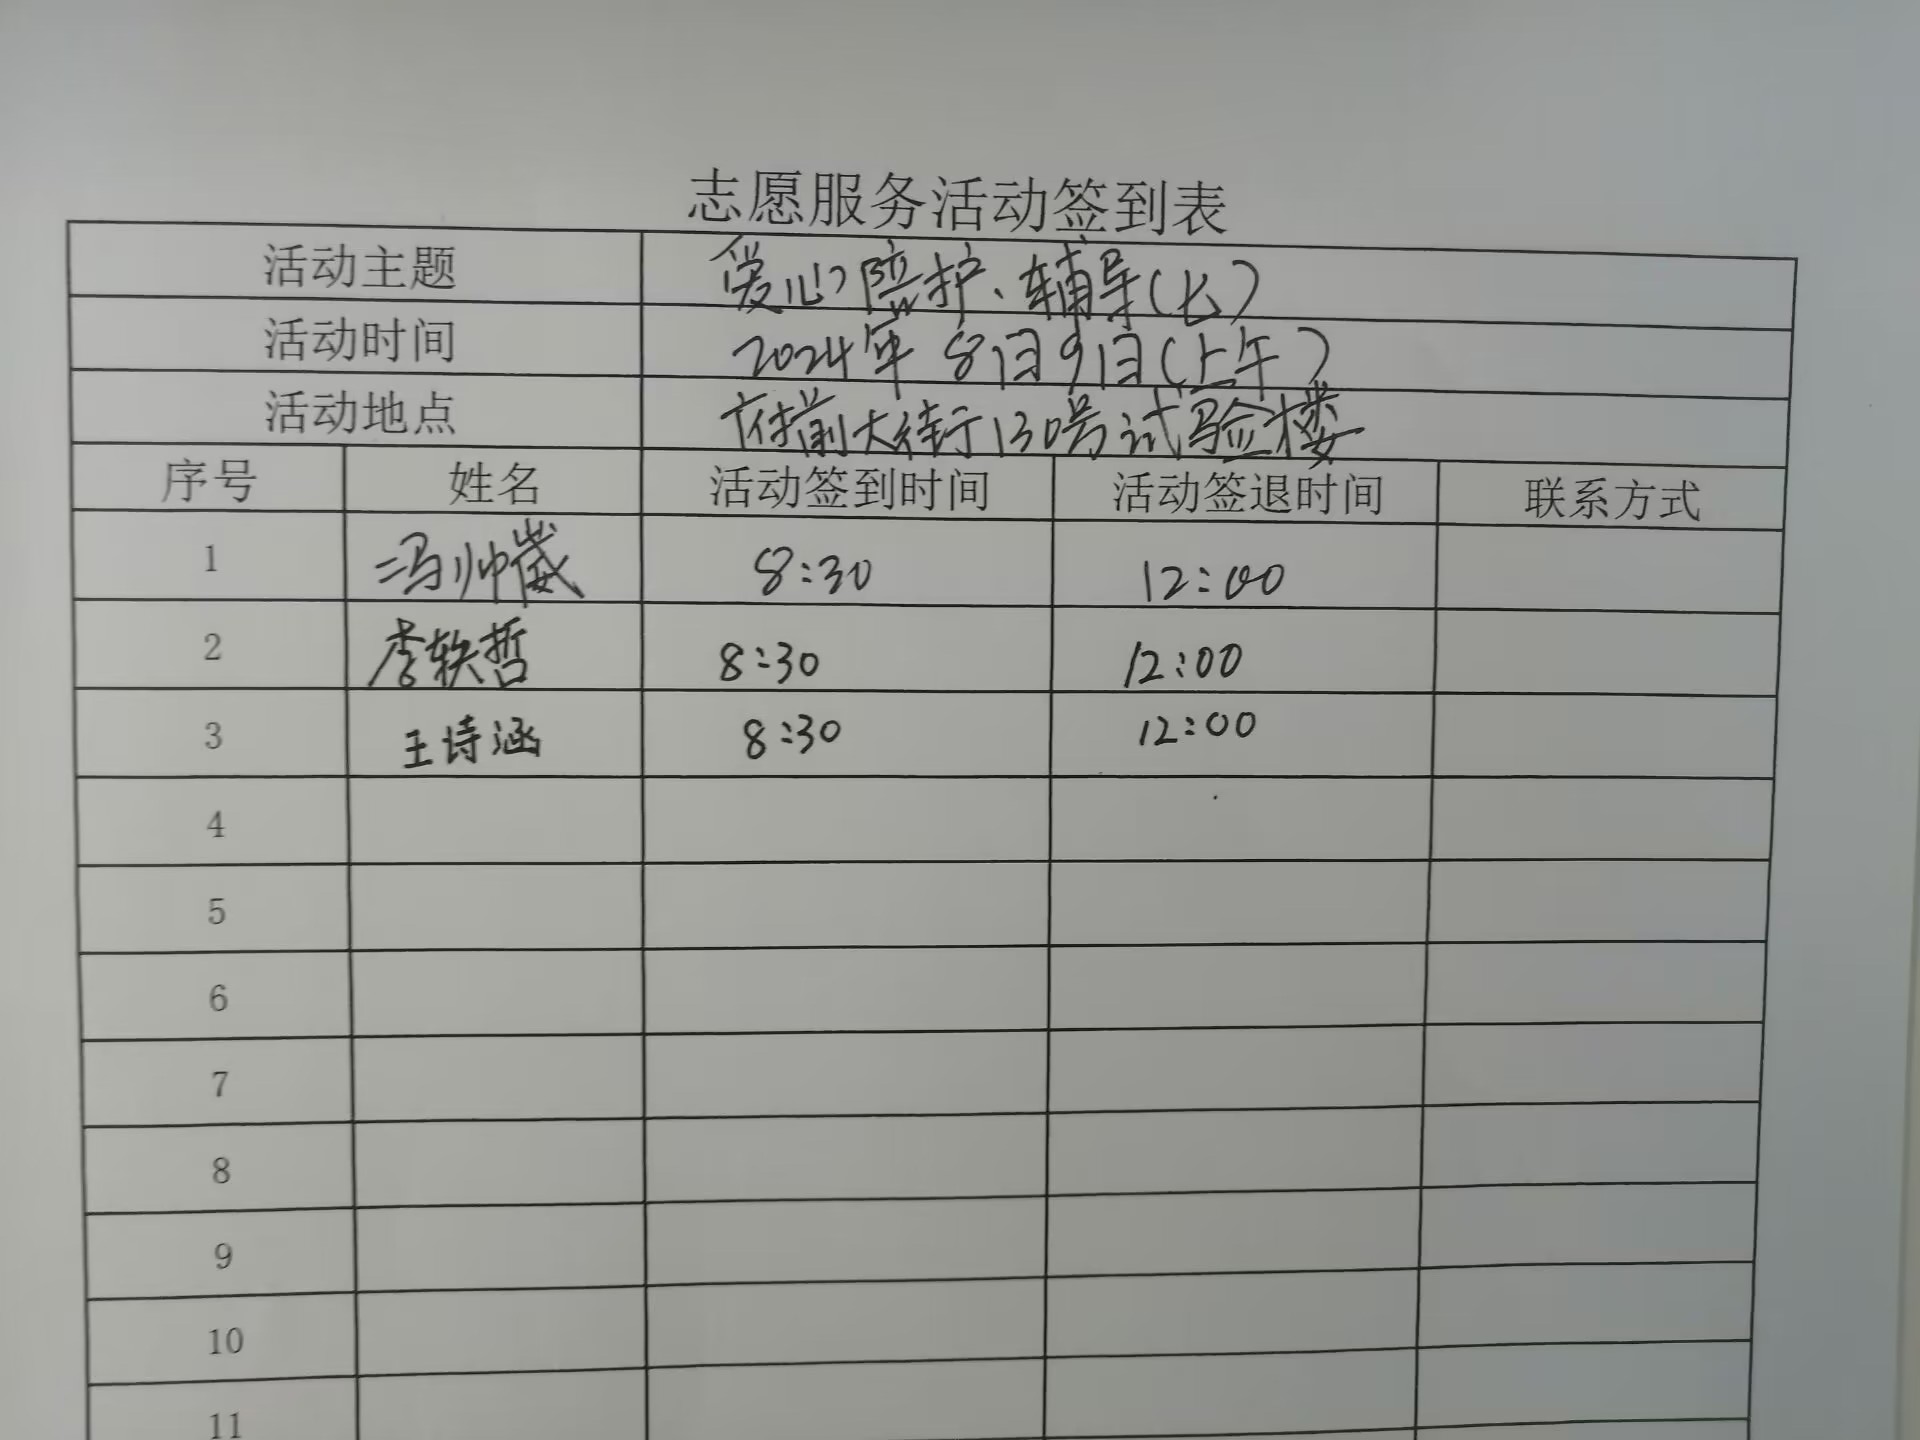 志愿服务活动签到表
活动主题 爱心陪护、辅导(七)
活动时间 2024年8月9日(上午)
活动地点 府前大街130号试验楼
序号 姓名 活动签到时间 活动签退时间 联系方式
1 冯帅崴 8:30 12:00
2 李轶哲 8:30 12:00
3 王诗涵 8:30 12:00
4
5
6
7
8
9
10
11